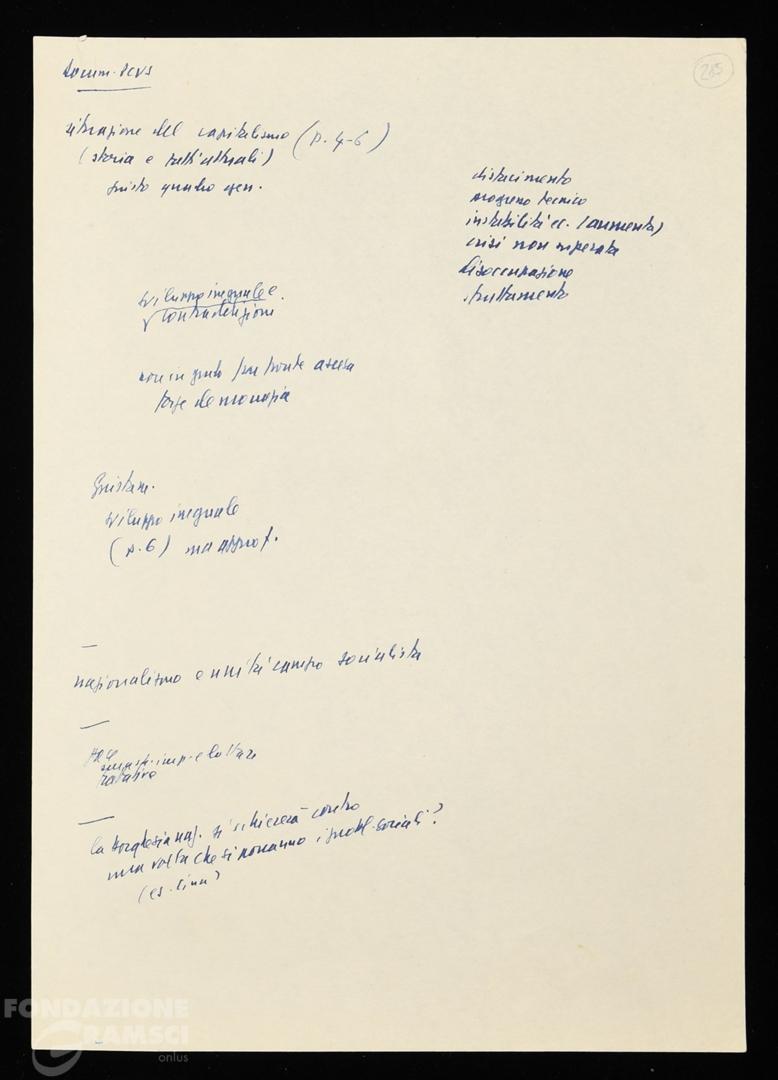 Docum. PCUS
285
situazione del capitalismo (p. 4-6)
(storia e fatti attuali)
giusto quadro gen.
disfacimento
progresso tecnico
instabilità ec. (aumenta)
crisi non superata
disoccupazione
sfruttamento
sviluppo ineguale e
contraddizioni
non in grado far fronte ascesa
forze democrazia
Giustam.
sviluppo ineguale
(p. 6) ma approf.
—
nazionalismo e unità campo socialista
—
—
la borghesia naz. si schiererà contro
una volta che si porranno i probl. sociali?
(es. Cina)
FONDAZIONE
GRAMSCI
onlus